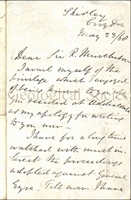 Shirley
Croydon
May 23/60
Dear Sir R. Murchison
I avail myself of the
privilege which I enjoyed
of being
received at Adelaide
as my apology for writing
to you now
I have for a long time
watched with much in-
terest the proceedings
adopted against General
Eyre. Till now I have